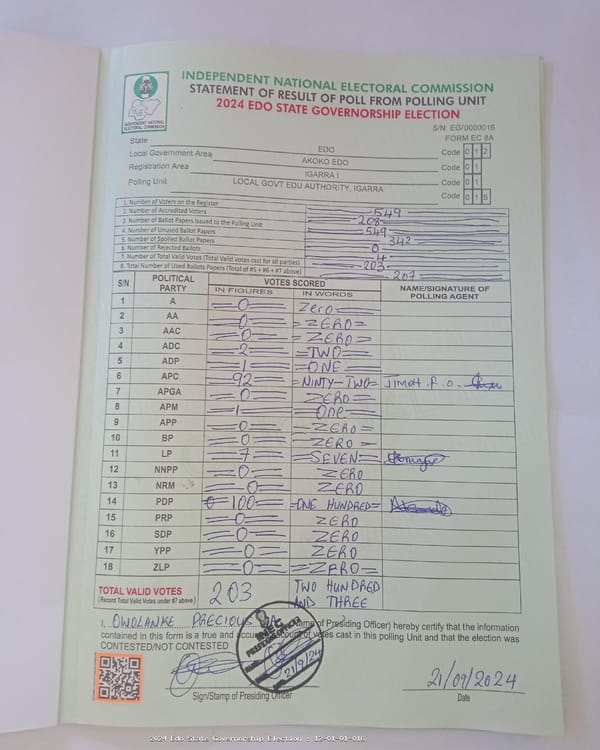 INDEPENDENT NATIONAL ELECTORAL COMMISSION
STATEMENT OF RESULT OF POLL FROM POLLING UNIT
2024 EDO STATE GOVERNORSHIP ELECTION
S/N: EG/0000016
FORM EC 8A
State EDO Code 0 1 2
Local Government Area AKOKO EDO Code 0 1
Registration Area IGARRA I Code 0 1
Polling Unit LOCAL GOVT EDU AUTHORITY, IGARRA Code 0 1 6
1. Number of Voters on the Register 549
2. Number of Accredited Voters 208
3. Number of Ballot Papers Issued to the Polling Unit 549
4. Number of Unused Ballot Papers 342
5. Number of Spoiled Ballot Papers 0
6. Number of Rejected Ballots 4
7. Number of Total Valid Votes (Total Valid Votes cast for all parties) 203
8. Total Number of Used Ballots Papers (Total of #5 + #6 + #7 above) 207
S/N POLITICAL PARTY VOTES SCORED NAME/SIGNATURE OF POLLING AGENT
IN FIGURES IN WORDS
1 A 0 Zero
2 AA 0 ZERO
3 AAC 0 ZERO
4 ADC 2 TWO
5 ADP 1 ONE
6 APC 92 NINTY-TWO
7 APGA 0 ZERO
8 APM 1 One
9 APP 0 ZERO
10 BP 0 ZERO
11 LP 7 SEVEN
12 NNPP 0 ZERO
13 NRM 0 ZERO
14 PDP 100 ONE HUNDRED
15 PRP 0 ZERO
16 SDP 0 ZERO
17 YPP 0 ZERO
18 ZLP 0 ZERO
TOTAL VALID VOTES 203 TWO HUNDRED AND THREE
(Record Total Valid Votes under #7 above)
I, OWOLANKE PRECIOUS (Name of Presiding Officer) hereby certify that the information
contained in this form is a true and accurate account of votes cast in this polling Unit and that the election was
CONTESTED/NOT CONTESTED
INEC
PRESIDING OFFICER
21/9/24
21/09/2024
Sign/Stamp of Presiding Officer Date
2024 Edo State Governorship Election : 12-01-01-016